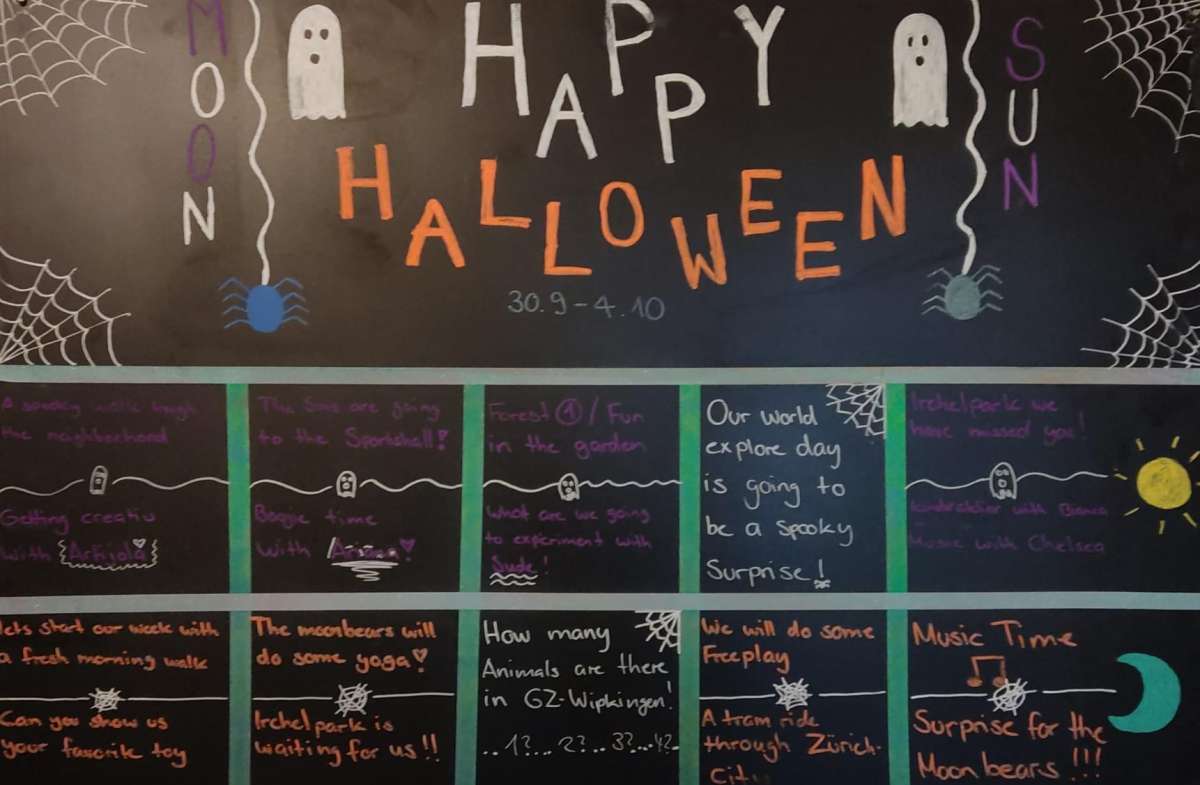 MOON
HAPPY
SUN
HALLOWEEN
30.9-4.10
A spooky walk trough
the neighborhood
Getting creativ
with Arbiola
The Suns are going
to the Sportshall!
Boogie time
with
Forest ① / Fun
in the garden
What are we going
to experiment with
Sude!
Our world
explore day
is going to
be a spooky
Surprise!
Irchelpark we
have missed you!
with
Music with Chelsea
lets start our week with
a fresh morning walk
Can you show us
your favorite toy
The moonbears will
do some yoga!
Irchelpark is
waiting for us!!
How many
Animals are there
in GZ-Wipkingen!
..1?...2?..3?...4?..
We will do some
Freeplay
A tram ride
through Zürich-
City
Music Time
Surprise for the
Moonbears!!!